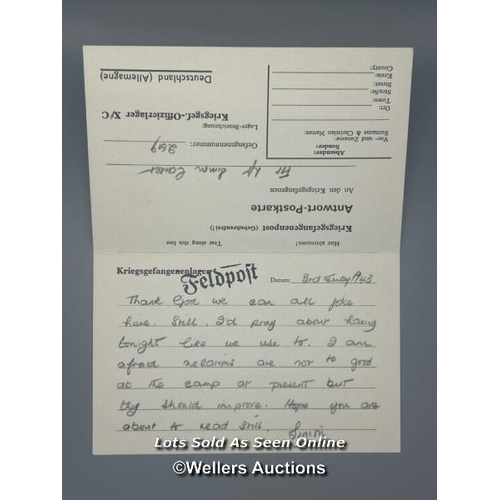 Deutschland (Allemagne)
Kriegsgef.-Offizierlager X/C
Lager-Bezeichnung:
Gefangenennummer: 269
An den Kriegsgefangenen
Antwort-Postkarte
Kriegsgefangenenpost (Gebührenfrei!)
Absender:
Sender:
Vor- und Zuname:
Surname & Christian Name:
Ort:
Town:
Straße:
Street:
Kreis:
County:
Hier abtrennen! Tear along this line
Kriegsgefangenenlager Feldpost Datum: 3rd 43
Thank God we can all joke
here. Still, I'd pray about having
tonight like we use to. I am
afraid relations are not to good
at the camp at present but
they should improve. Hope you are
about to read still.
Simon
Lots Sold As Seen Online
©Wellers Auctions